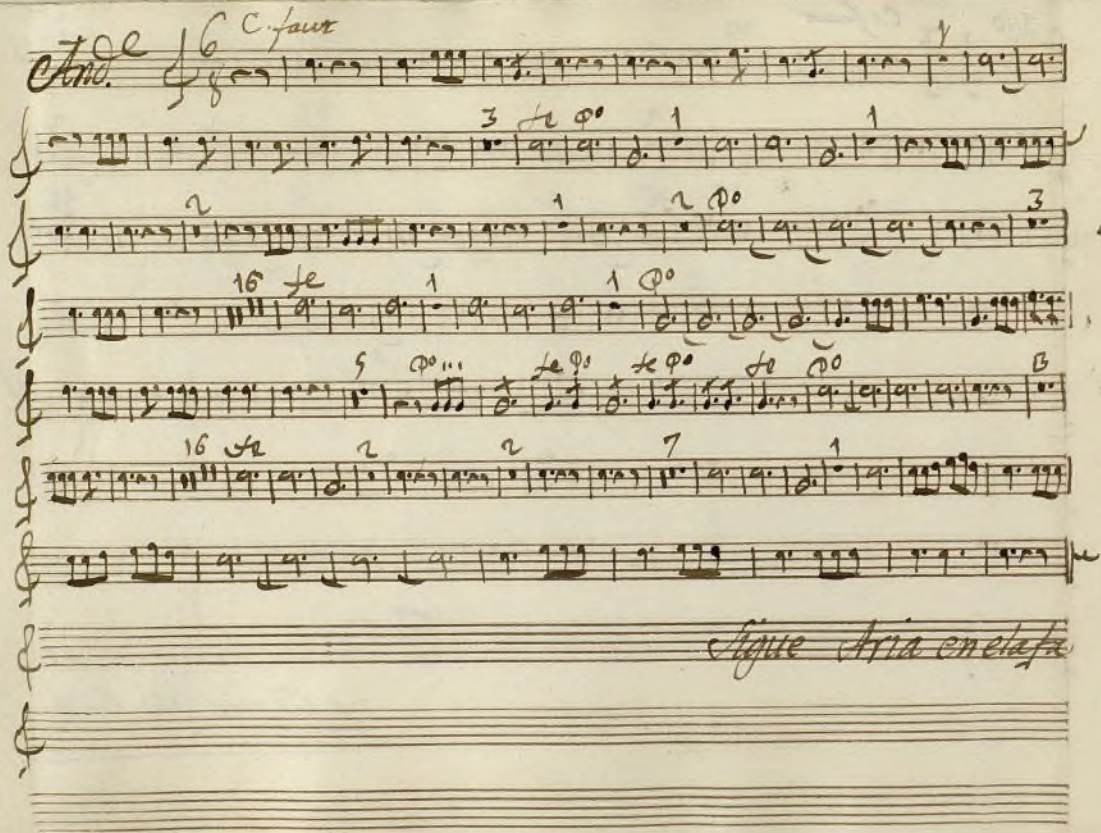 And.e 6 8 C. faut
1
3 fe Po 1 1
2 1 2 Po 3
16 fe 1 1 Po
5 Po... fe Po fe Po fe Po 13
16 fe 2 2 7 1
Sigue Aria en elafa